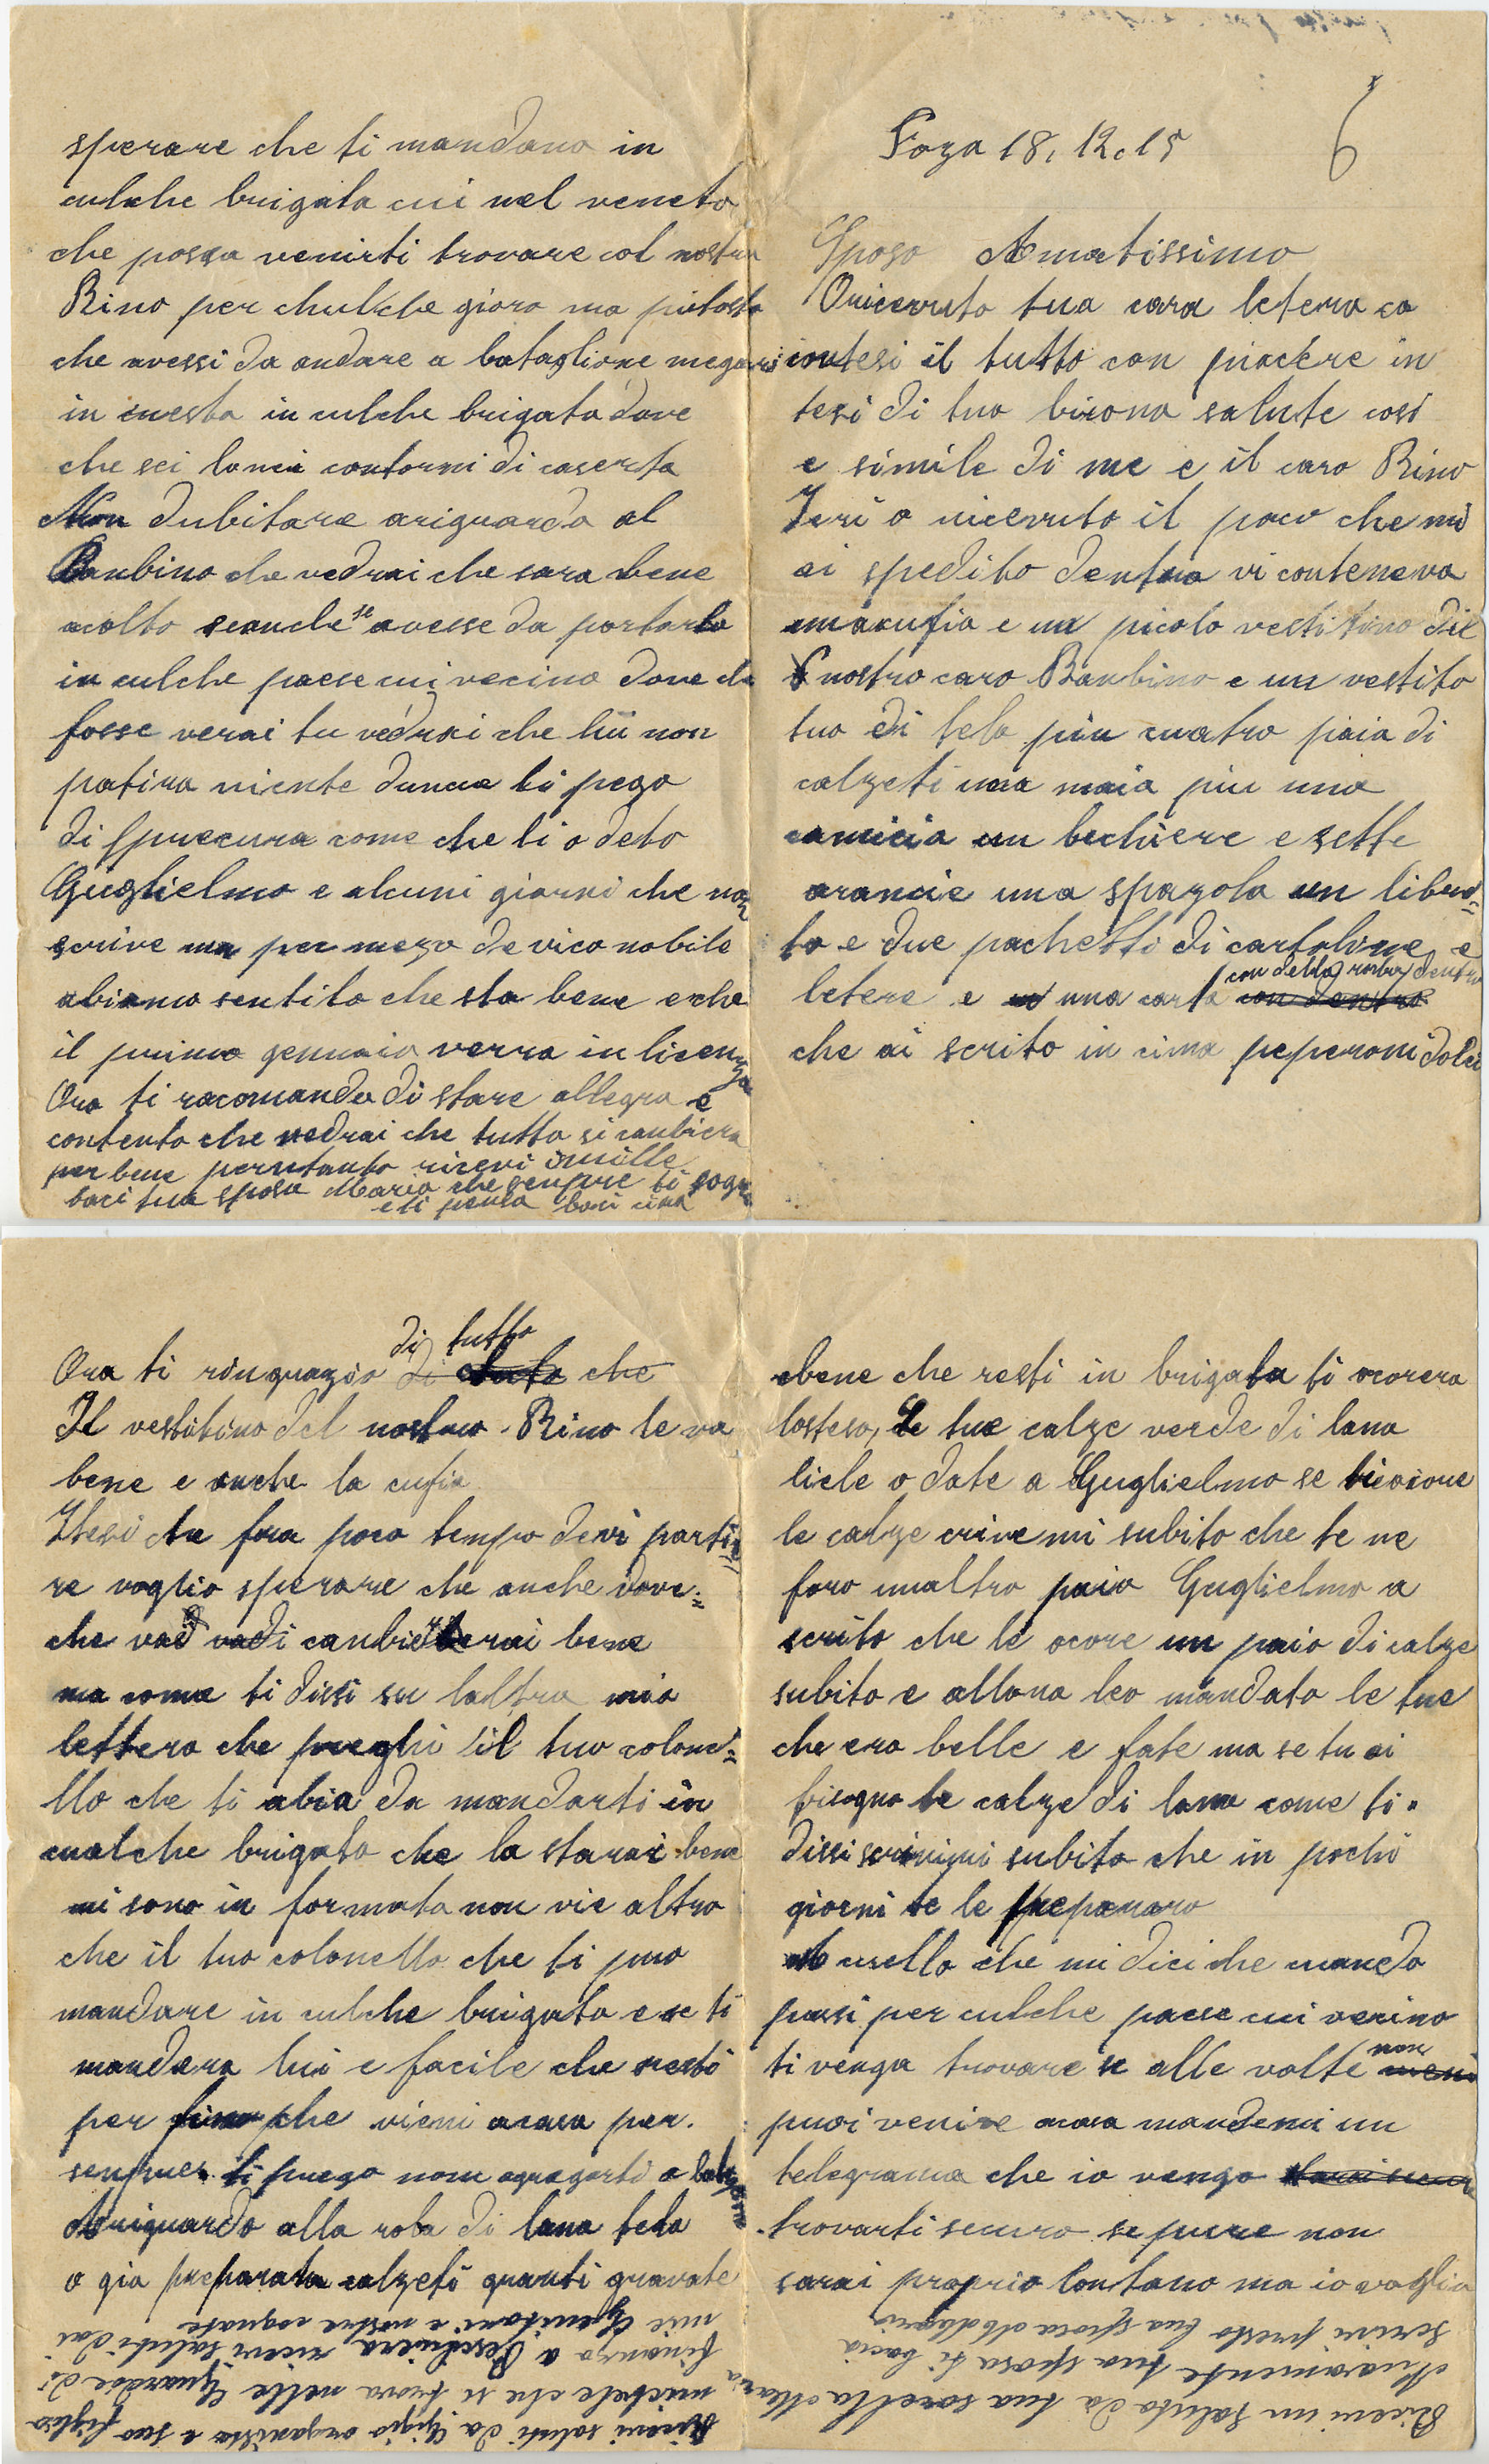 6
Foza 18, 12.15
Sposo Amatissimo
O ricevuto tua cara letera co
intesi il tutto con piacere in
tesi di tua buona salute cosi
e simile di me e il caro Rino
Ieri o ricevuto il paco che mi
ai spedito dentro vi conteneva
una cufia e un picolo vestitino del
nostro caro Banbino e un vestito
tuo di tela piu cuatro paia di
calzeti una maia piu una
camicia un bichiere e sette
arancie una spazola un libret=
to e due pachetti di cartoline e
letere e una carta con della roba dentro
che ai scrito in cima peperoni dolci
Ora ti ringrazio di tutto
Il vestitino del nostro Rino le va
bene e anche la cufia
Itesi che fra poco tempo devi parti=
re voglio sperare che anche dove=
che vadi canbierai bene
ma come ti dissi su laltra mia
lettera che preghi il tuo colone=
llo che ti abia da mandarti in
cualche brigata che la starai bene
mi sono in formata non vie altro
che il tuo colonello che ti puo
mandare in culche brigata e se ti
mandera lui e facile che resti
per fino che vieni acasa per.
senpre. ti prego non agragarti a
Ariguardo alla roba di lana tela
o gia preparata calzeti guanti gravate
ebene che resti in brigata ti ocorera
losteso, Le tue calze verde di lana
liele o date a Guglielmo se ti ocore
le calze crivemi subito che te ne
faro unaltro paio Guglielmo a
scrito che le ocore un paio di calze
subito e allora leo mandato le tue
che era belle e fate ma se tu ai
bisogno le calze di lana come ti
dissi scrivimi subito che in pochi
giorni te le preparo
cuello che mi dici che cuando
pasi per culche paese cui vecino
ti venga trovare se alle volte non
puoi venire acasa mandemi un
telegrama che io vengo
trovarti securo se pure non
sarai proprio lontano ma io voglio
sperare che ti mandano in
culche brigata cui nel veneto
che possa venirti trovare col nostro
Rino per chulche gioro ma piutosto
che avessi da andare a bataglione megari
in cuesta in culche brigata dove
che sei lonci contorni di caserta
Non dubitare ariguardo al
Banbino che vedrai che sara bene
acolto seanche se avesse da portarlo
in culche paese cui vecino dove che
fosse verai tu vedrai che lui non
patira nienteduncue ti pego
di fprecura come che ti o deto
Guglielmo e alcuni giorni che non
scrive ma per mezo de vico nobile
abiamo sentito che sta bene eche
il primo gennaio verra in licenza
Ora ti racomando di stare allegro e
contento che vedrai che tutto si canbiera
per bene perntanto ricevi i mille
baci tua sposa Maria che senpre ti sogna
e ti pensa baci
Ricevi un saluto da tua sorella Maria
Nuovamente tua sposa ti bacia
scrivi presto tua sposa
Ricevi saluti da Gigio organista e suo figlio
michele che si trova nelle Guardie di
finanza a Peschiera ricevi saluti dai
mie Genitori e nostre cognate